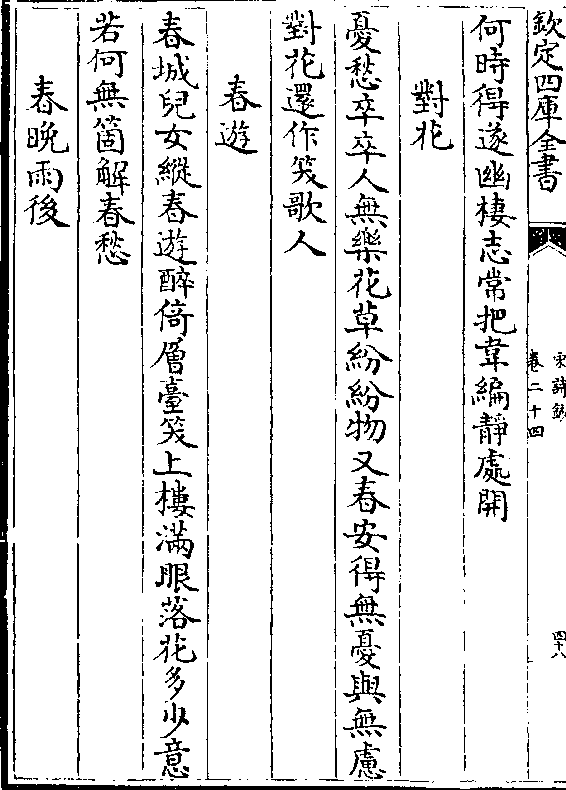 欽定四庫全書
宋詩鈔
卷二十四
四十八
何時得遂幽棲志常把韋編靜處開
對花
憂愁卒卒人無樂花草紛紛物又春安得無憂與無慮
對花還作笑歌人
春遊
春城兒女縱春遊醉倚層臺笑上樓滿眼落花多少意
若何無箇解春愁
春晚雨後